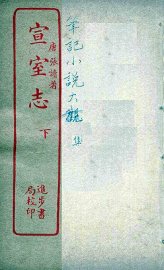 唐張讀著
宣室志
下
進步書
局校印
筆記小說大觀
集